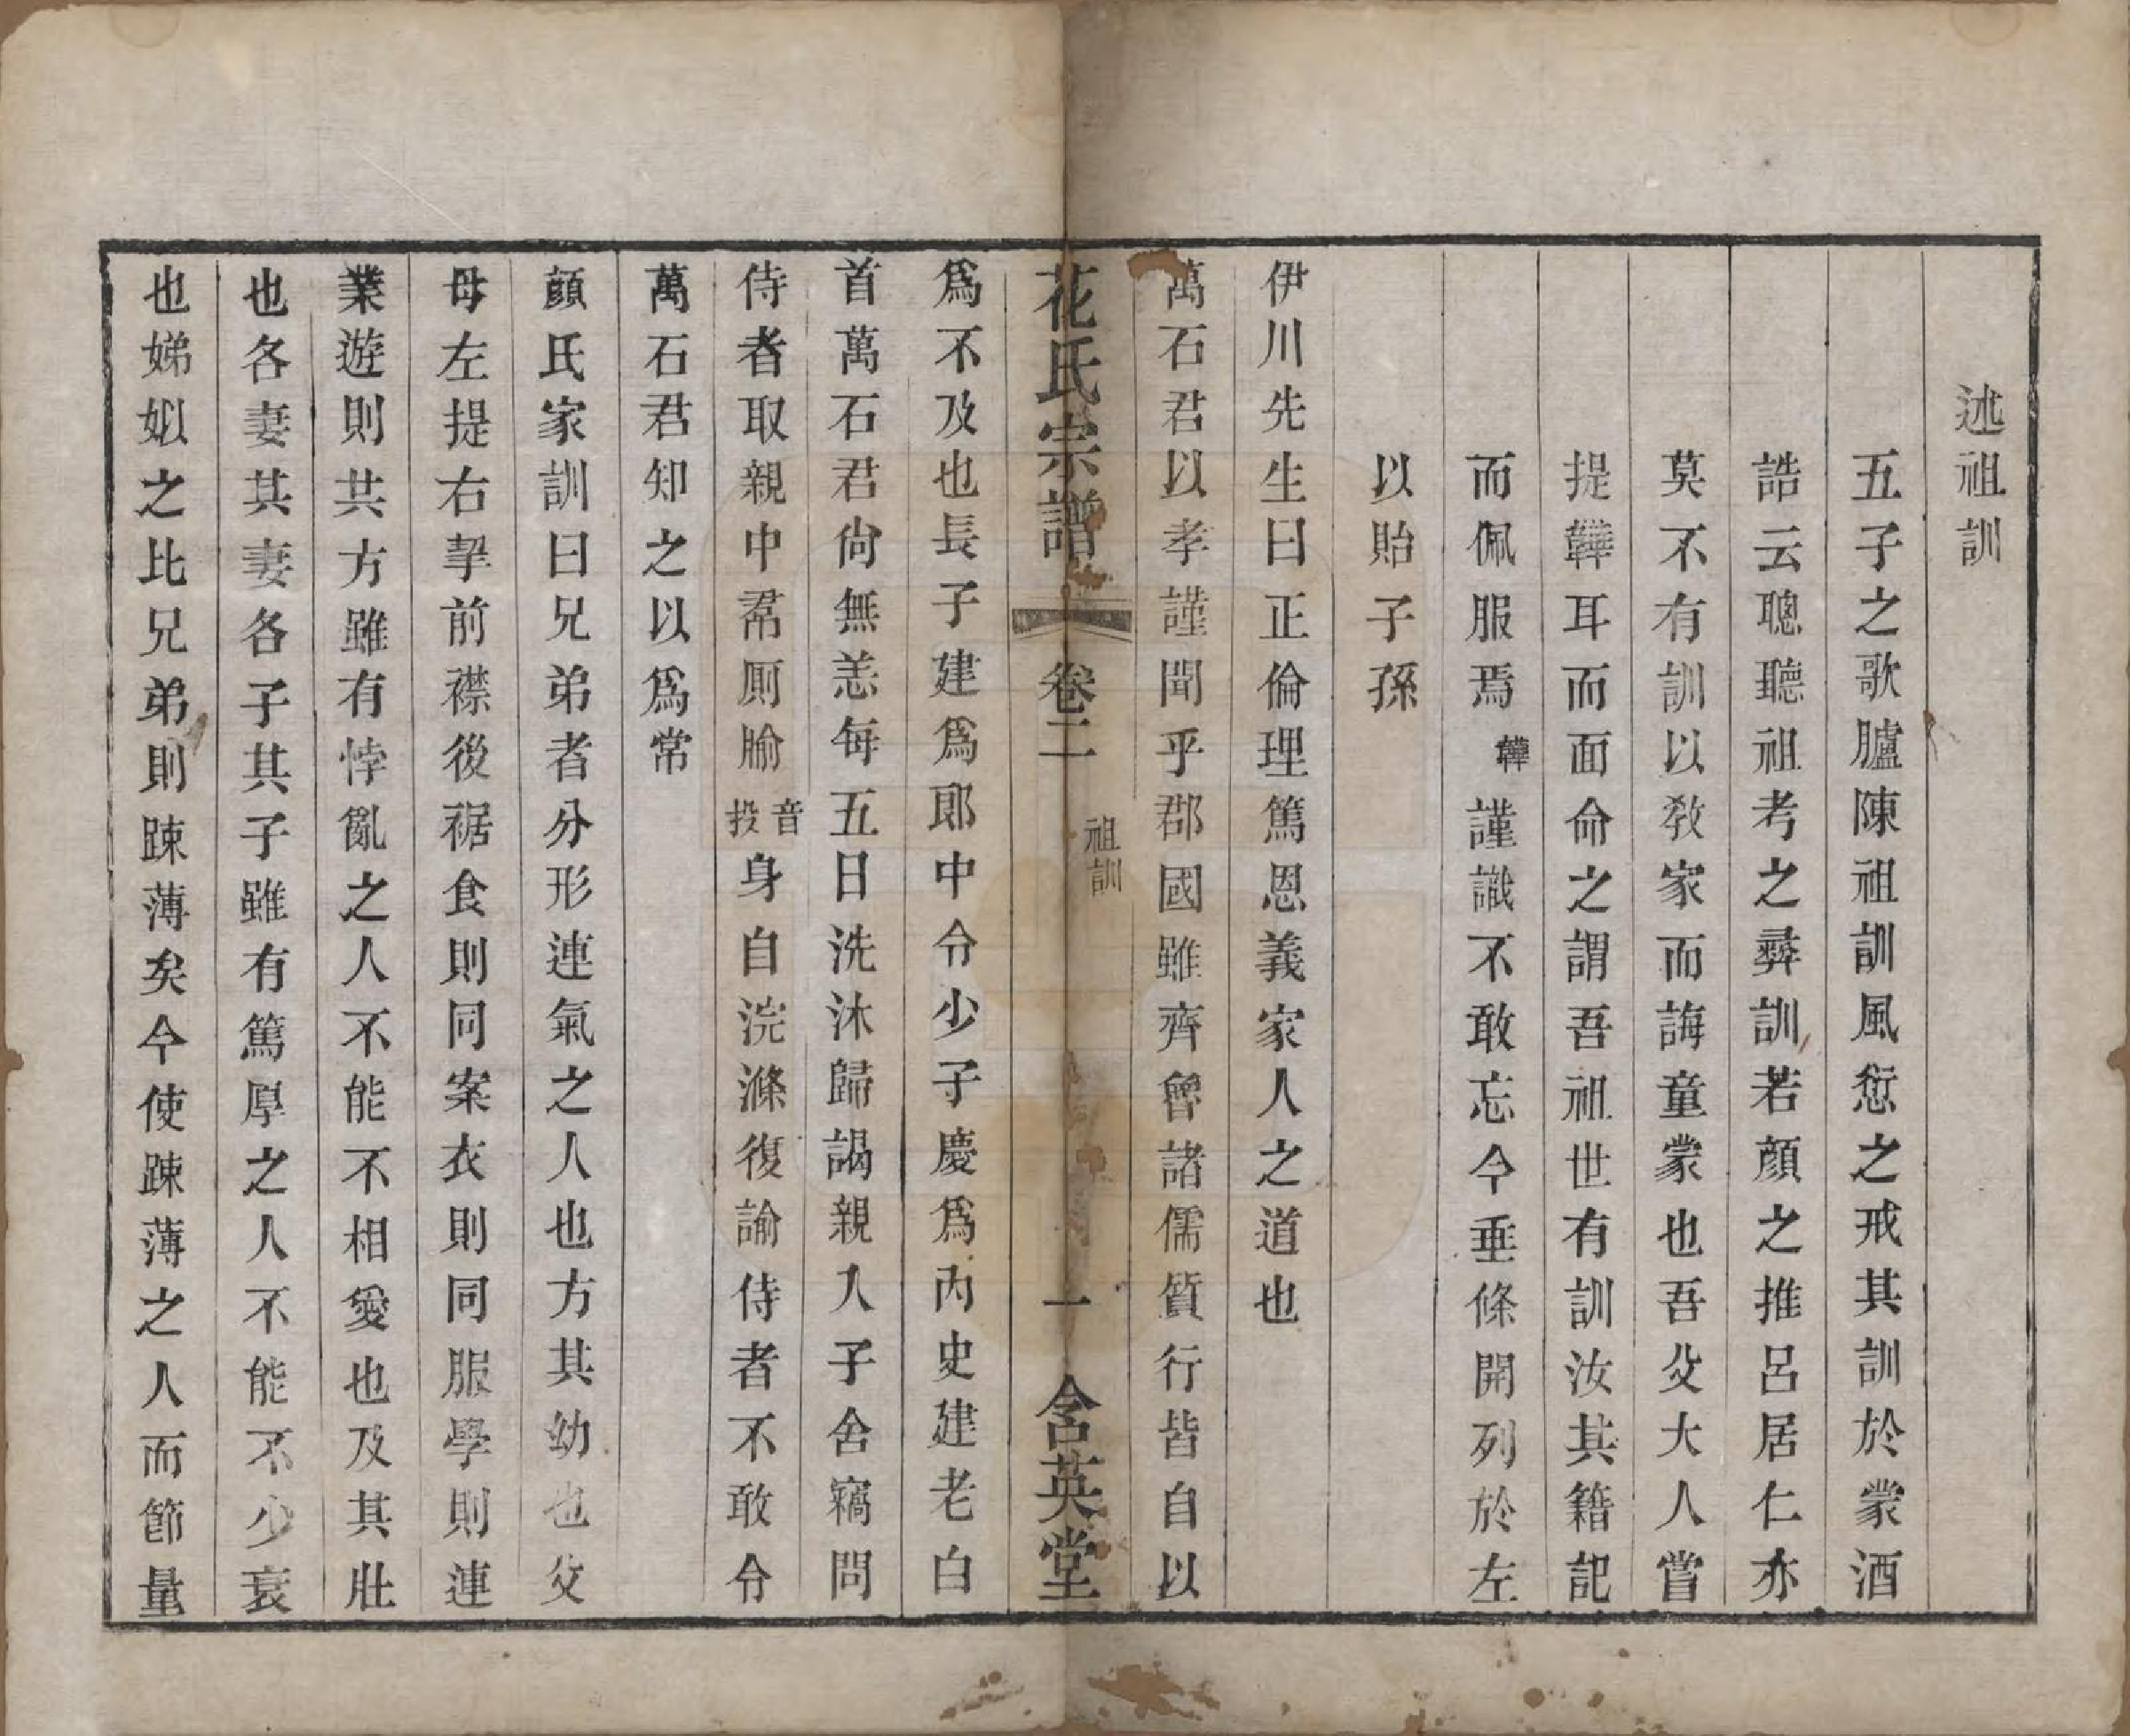 述祖訓
五子之歌臚陳祖訓風愆之戒其訓於蒙酒
誥云聰聽祖考之彞訓若顔之推呂居仁亦
莫不有訓以敎家而誨童蒙也吾父大人嘗
提韡耳而面命之謂吾祖世有訓汝其籍記
而佩服焉韡謹識不敢忘今垂條開列於左
以貽子孫
伊川先生曰正倫理篤恩義家人之道也
萬石君以孝謹聞乎郡國雖齊魯諸儒質行皆自以
花氏宗譜 卷二 祖訓 一 含英堂
爲不及也長子建爲郎中令少子慶爲內史建老白
首萬石君尙無恙每五日洗沐歸謁親入子舍竊問
侍者取親中帬厠牏音投身自浣滌復諭侍者不敢令
萬石君知之以爲常
顔氏家訓曰兄弟者分形連氣之人也方其幼也父
母左提右挈前襟後裾食則同案衣則同服學則連
業遊則共方雖有悖亂之人不能不相愛也及其壯
也各妻其妻各子其子雖有篤厚之人不能不少衰
也娣姒之比兄弟則踈薄矣今使踈薄之人而節量